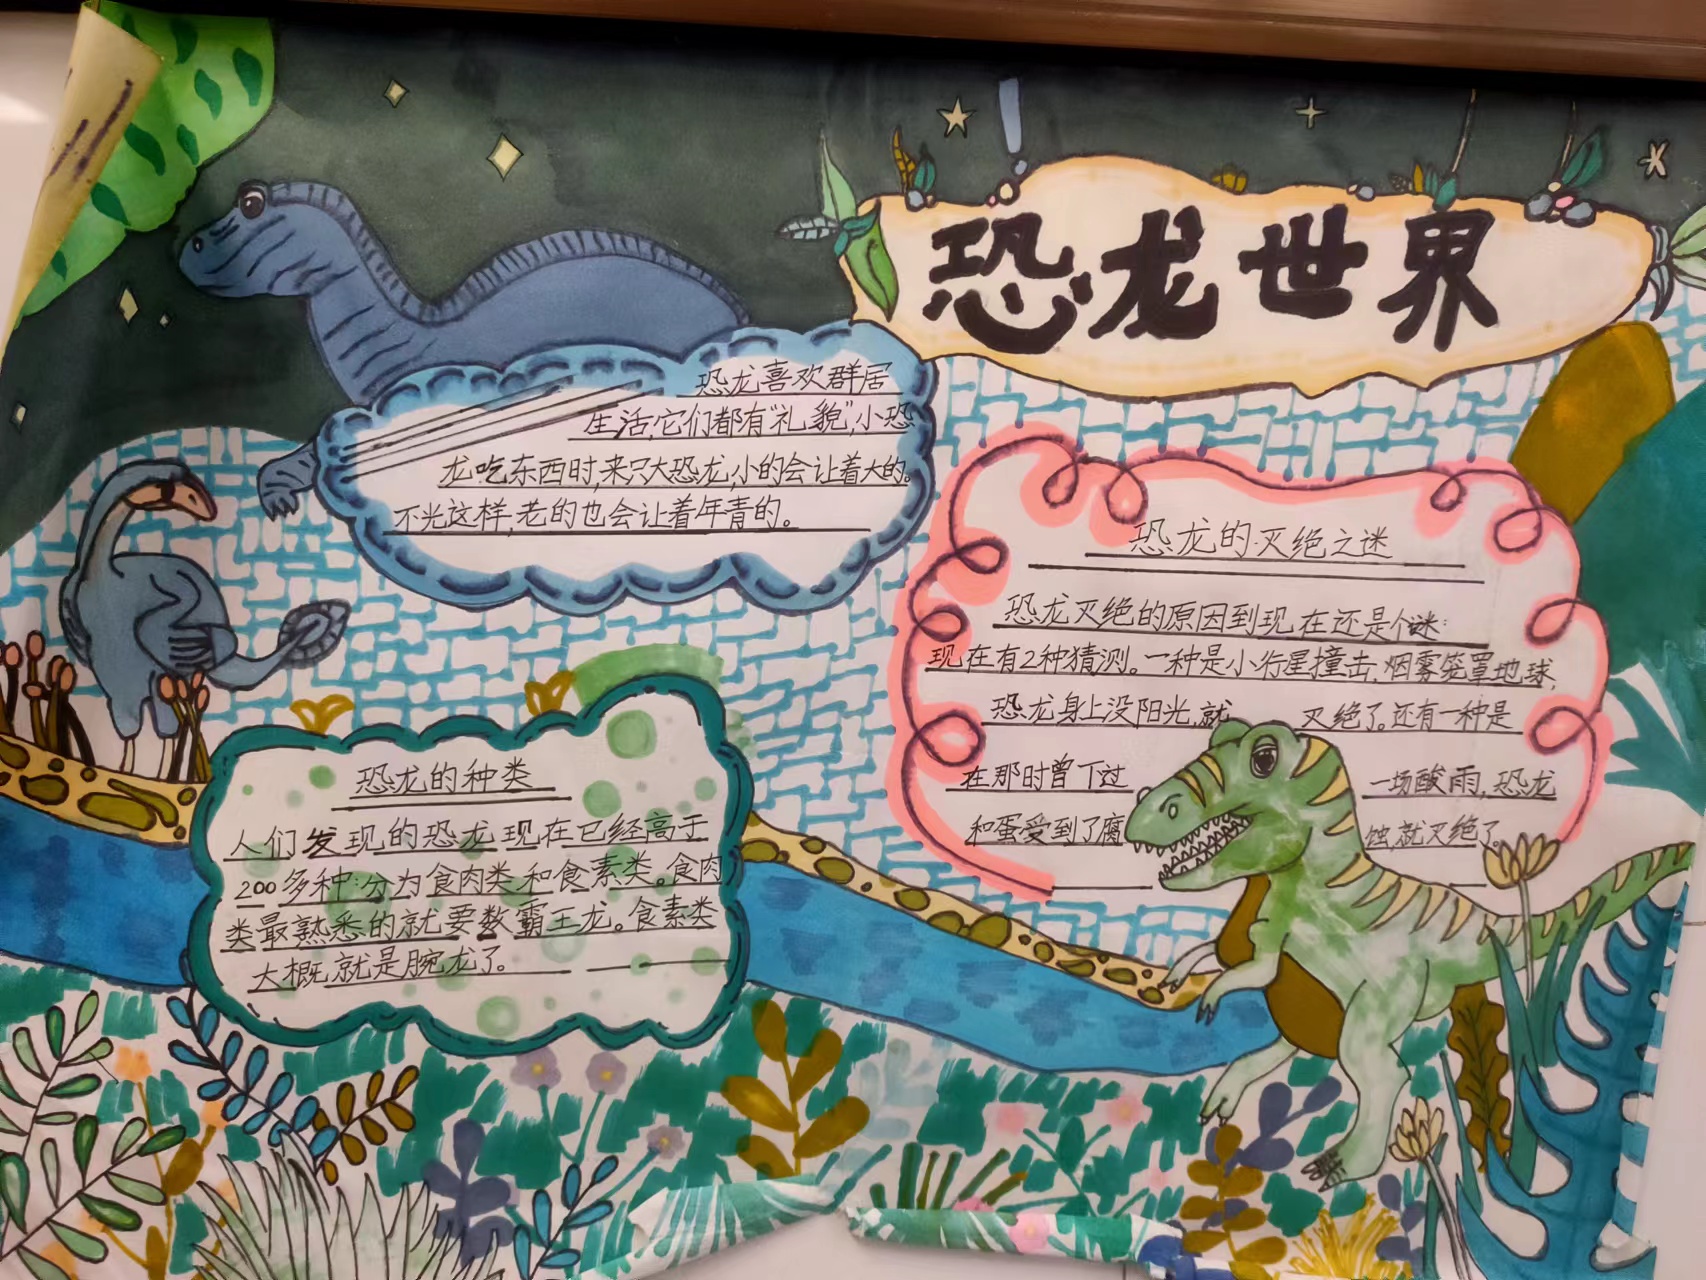 恐龙世界
恐龙喜欢群居
生活,它们都有"礼貌",小恐
龙吃东西时,来只大恐龙,小的会让着大的。
不光这样,老的也会让着年青的。
恐龙的灭绝之谜
恐龙灭绝的原因到现在还是个谜:
现在有2种猜测。一种是小行星撞击,烟雾笼罩地球,
恐龙身上没阳光,就灭绝了。还有一种是
在那时曾下过一场酸雨,恐龙
和蛋受到了腐蚀,就灭绝了。
恐龙的种类
人们发现的恐龙现在已经高于
200多种:分为食肉类和食素类。食肉
类最熟悉的就要数霸王龙。食素类
大概就是腕龙了。